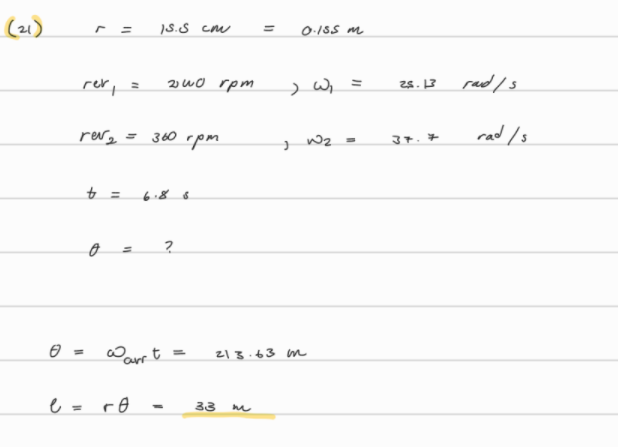 (21) r = 15.5 cm = 0.155 m
rev₁ = 240 rpm , ω₁ = 25.13 rad/s
rev₂ = 360 rpm , ω₂ = 37.7 rad/s
t = 6.8 s
θ = ?
θ = ω t = 213.63 m
l = rθ = 33 m